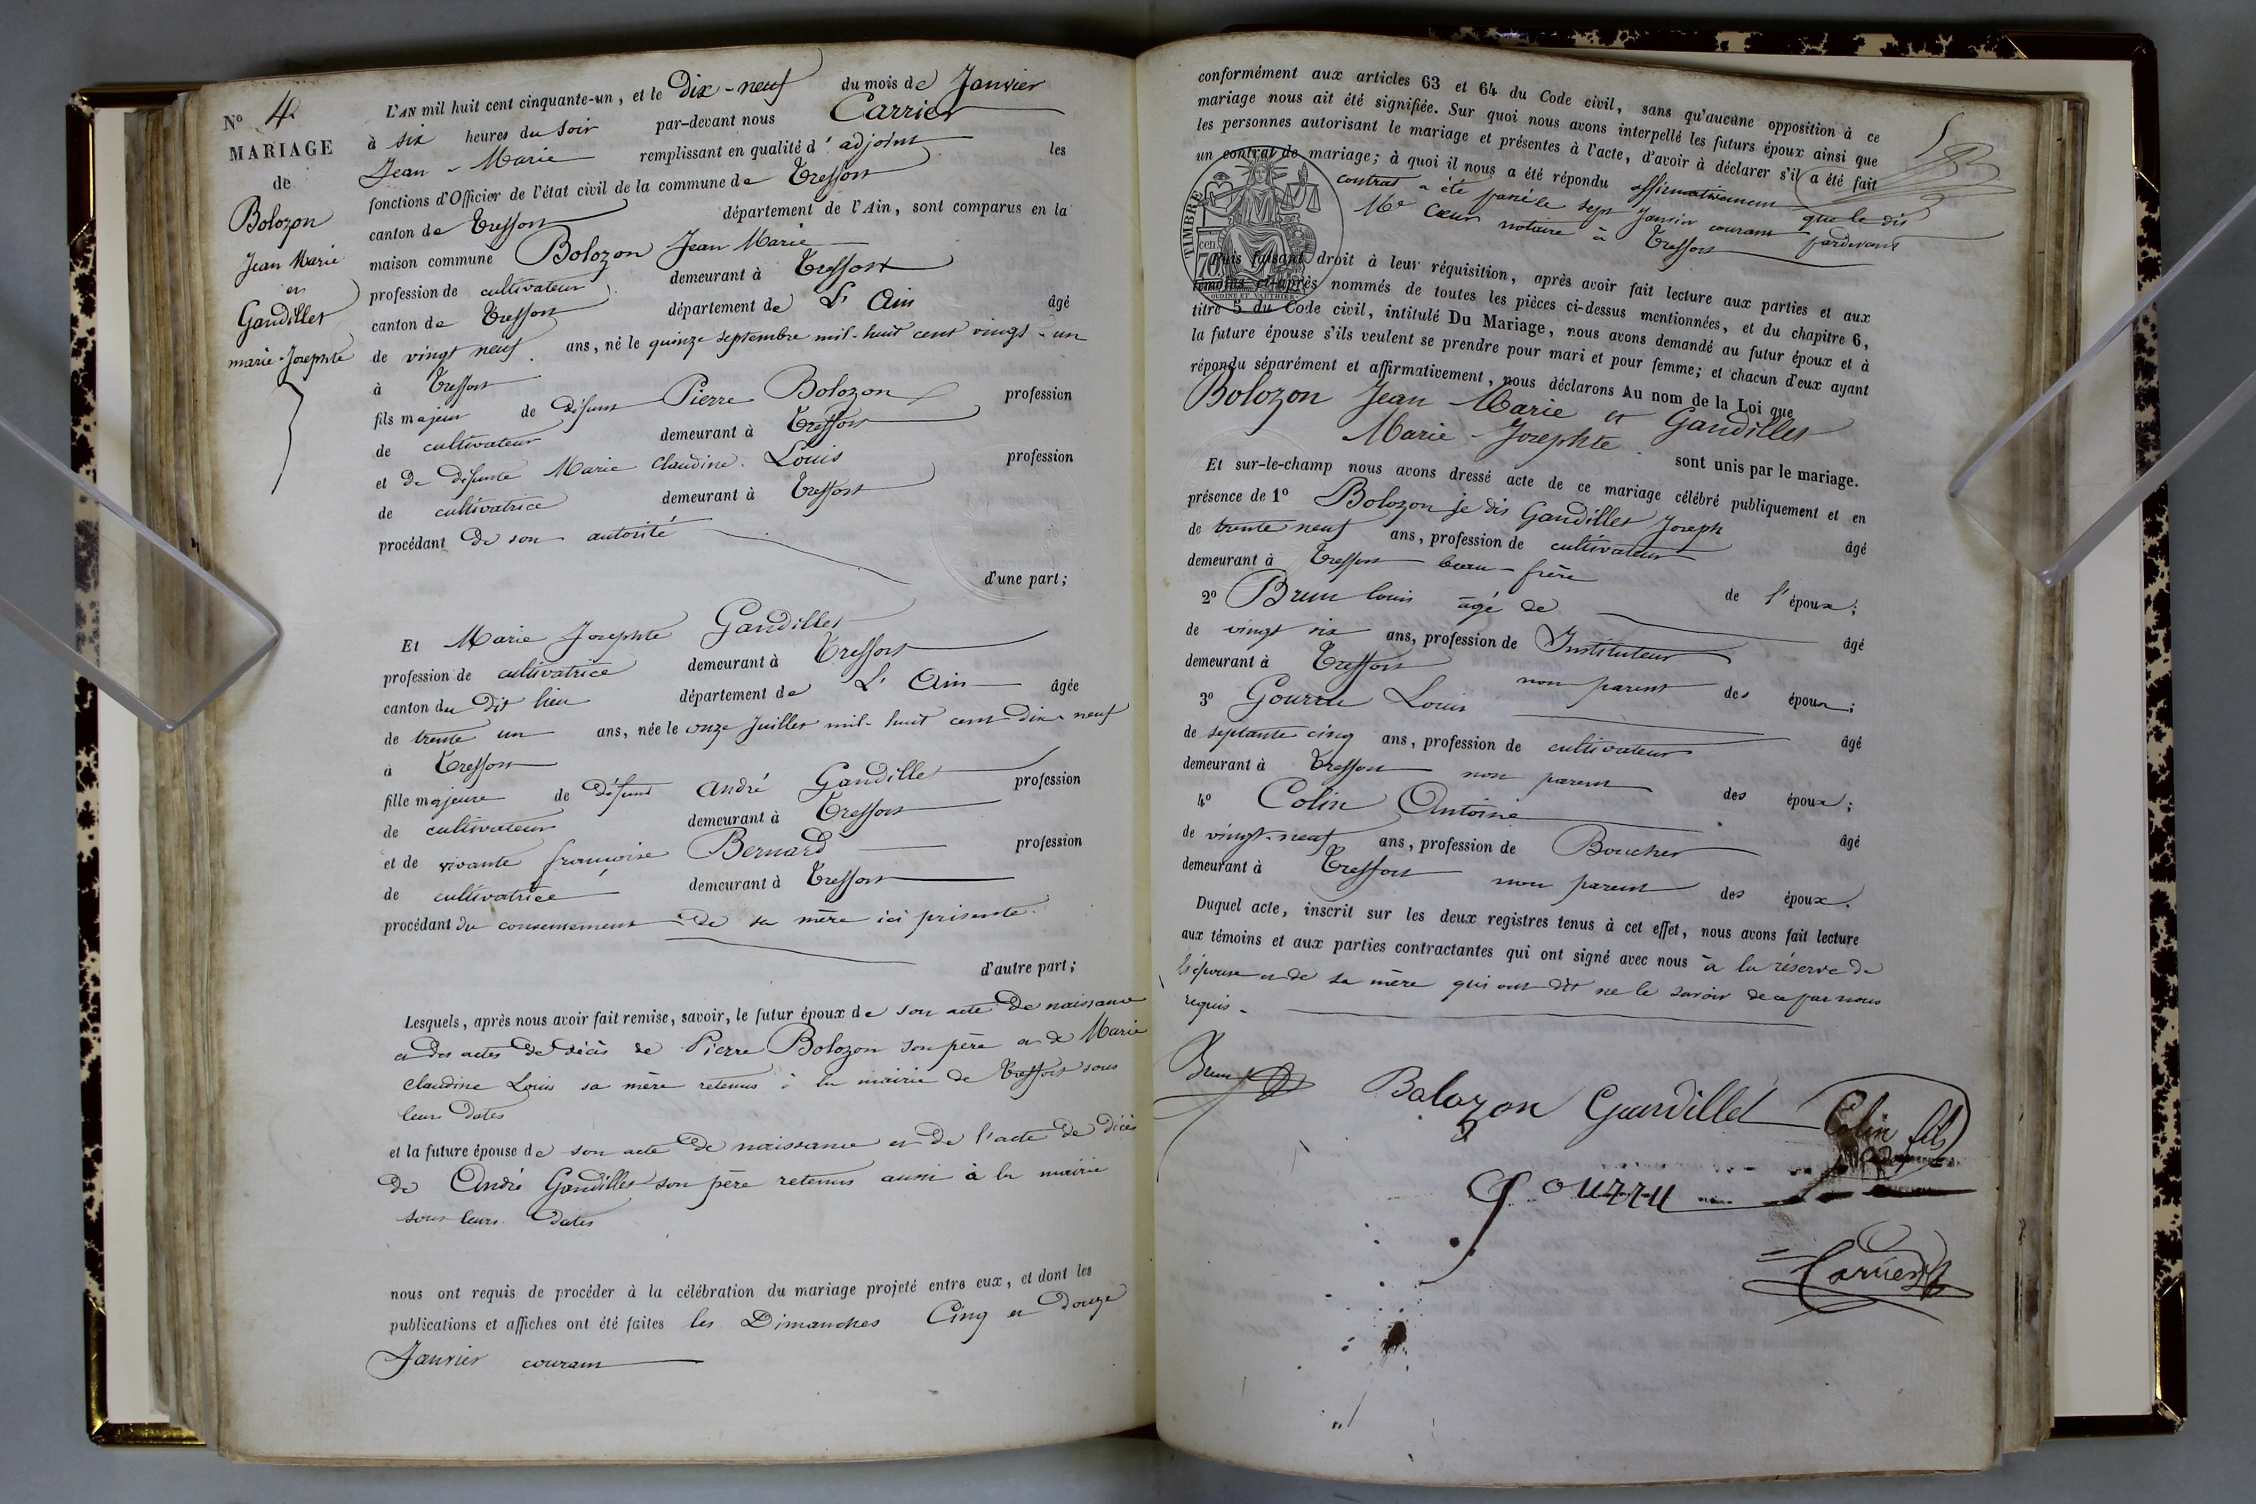 N° 4
MARIAGE
de
Bolozon
Jean Marie
et
Gandillet
marie-Josephte
L'AN mil huit cent cinquante-un, et le Dix-neuf du mois de Janvier
à six heures du soir par-devant nous Carrier
Jean-Marie remplissant en qualité d'adjoint les
fonctions d'Officier de l'état civil de la commune de Treffort
canton de Treffort département de l'Ain, sont comparus en la
maison commune Bolozon Jean Marie
profession de cultivateur demeurant à Treffort
canton de Treffort département de L'Ain âgé
de vingt neuf ans, né le quinze septembre mil-huit cent vingt-un
à Treffort
fils majeur de défunt Pierre Bolozon profession
de cultivateur demeurant à Treffort
et de défunte Marie claudine Louis profession
de cultivatrice demeurant à Treffort
procédant de son autorité
d'une part;
Et Marie Josephte Gandillet
profession de cultivatrice demeurant à Treffort
canton du dit lieu département de L'Ain âgée
de trente un ans, née le onze Juillet mil-huit cent dix-neuf
à Treffort
fille majeure de défunt André Gandillet profession
de cultivateur demeurant à Treffort
et de vivante françoise Bernard profession
de cultivatrice demeurant à Treffort
procédant du consentement de sa mère ici présente.
d'autre part;
Lesquels, après nous avoir fait remise, savoir, le futur époux de son acte de naissance
et des actes de décès de Pierre Bolozon son père et de Marie
claudine Louis sa mère retenus à la mairie de Treffort sous
leurs dates
et la future épouse de son acte de naissance et de l'acte de décès
de André Gandillet son père retenus aussi à la mairie
sous leurs dates
nous ont requis de procéder à la célébration du mariage projeté entre eux, et dont les
publications et affiches ont été faites les Dimanches Cinq et douze
Janvier courant
conformément aux articles 63 et 64 du Code civil, sans qu'aucune opposition à ce
mariage nous ait été signifiée. Sur quoi nous avons interpellé les futurs époux ainsi que
les personnes autorisant le mariage et présentes à l'acte, d'avoir à déclarer s'il a été fait
un contrat de mariage; à quoi il nous a été répondu affirmativement que le dit
contrat a été passé le sept Janvier courant pardevant
Me Cœur notaire à Treffort
TIMBRE
cen.
70
OUDINÉ ET VAUTHIER
Puis faisant droit à leur réquisition, après avoir fait lecture aux parties et aux
témoins ci-après nommés de toutes les pièces ci-dessus mentionnées, et du chapitre 6,
titre 5 du Code civil, intitulé Du Mariage, nous avons demandé au futur époux et à
la future épouse s'ils veulent se prendre pour mari et pour femme; et chacun d'eux ayant
répondu séparément et affirmativement, nous déclarons Au nom de la Loi que
Bolozon Jean Marie et Gandillet
Marie-Josephte sont unis par le mariage.
Et sur-le-champ nous avons dressé acte de ce mariage célébré publiquement et en
présence de 1° Bolozon je dis Gandillet Joseph âgé
de trente neuf ans, profession de cultivateur
demeurant à Treffort beau-frère de l'époux;
2° Brun louis âgé de âgé
de vingt six ans, profession de Instituteur
demeurant à Treffort non parent des époux;
3° Gourru Louis âgé
de septante cinq ans, profession de cultivateur
demeurant à Treffort non parent des époux;
4° Colin Antoine âgé
de vingt-neuf ans, profession de Boucher
demeurant à Treffort non parent des époux.
Duquel acte, inscrit sur les deux registres tenus à cet effet, nous avons fait lecture
aux témoins et aux parties contractantes qui ont signé avec nous à la réserve de
l'épouse et de sa mère qui ont dit ne le savoir de ce par nous
requis.
Brun Bolozon Gandillet Colin fils
Gourru
Carrier